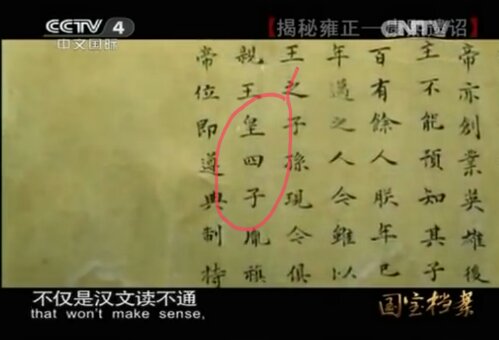 CCTV 4
中文国际
揭秘雍正—
CNTV
诏
帝亦創業英雄後
主不能預知其子
百有餘人朕年已
年邁之人今雖以
王之子孫現今俱
親王皇四子胤禛
帝位即遵典制持
不仅是汉文读不通
that won't make sense,
国宝档案